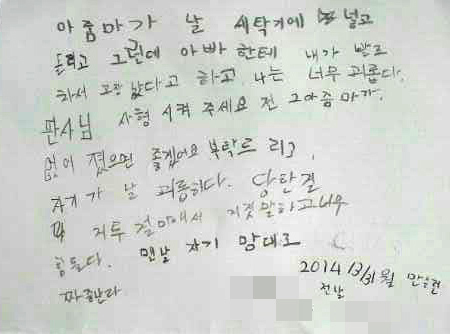 아줌마가 날 세탁기에 널고
돌리고 그런데 아빠 한테 내가 발로
차서 고장 났다고 하고 나는 너무 괴롭다.
판사님 사형 시켜 주세요 전 그아줌마가.
없어 졌으면 좋겠어요 부탁드 리고,
자기가 날 괴롱하다.
거짓말하고 너무
힘들다. 맨날 자기 맘대로
2014 3/31월
짜증난다